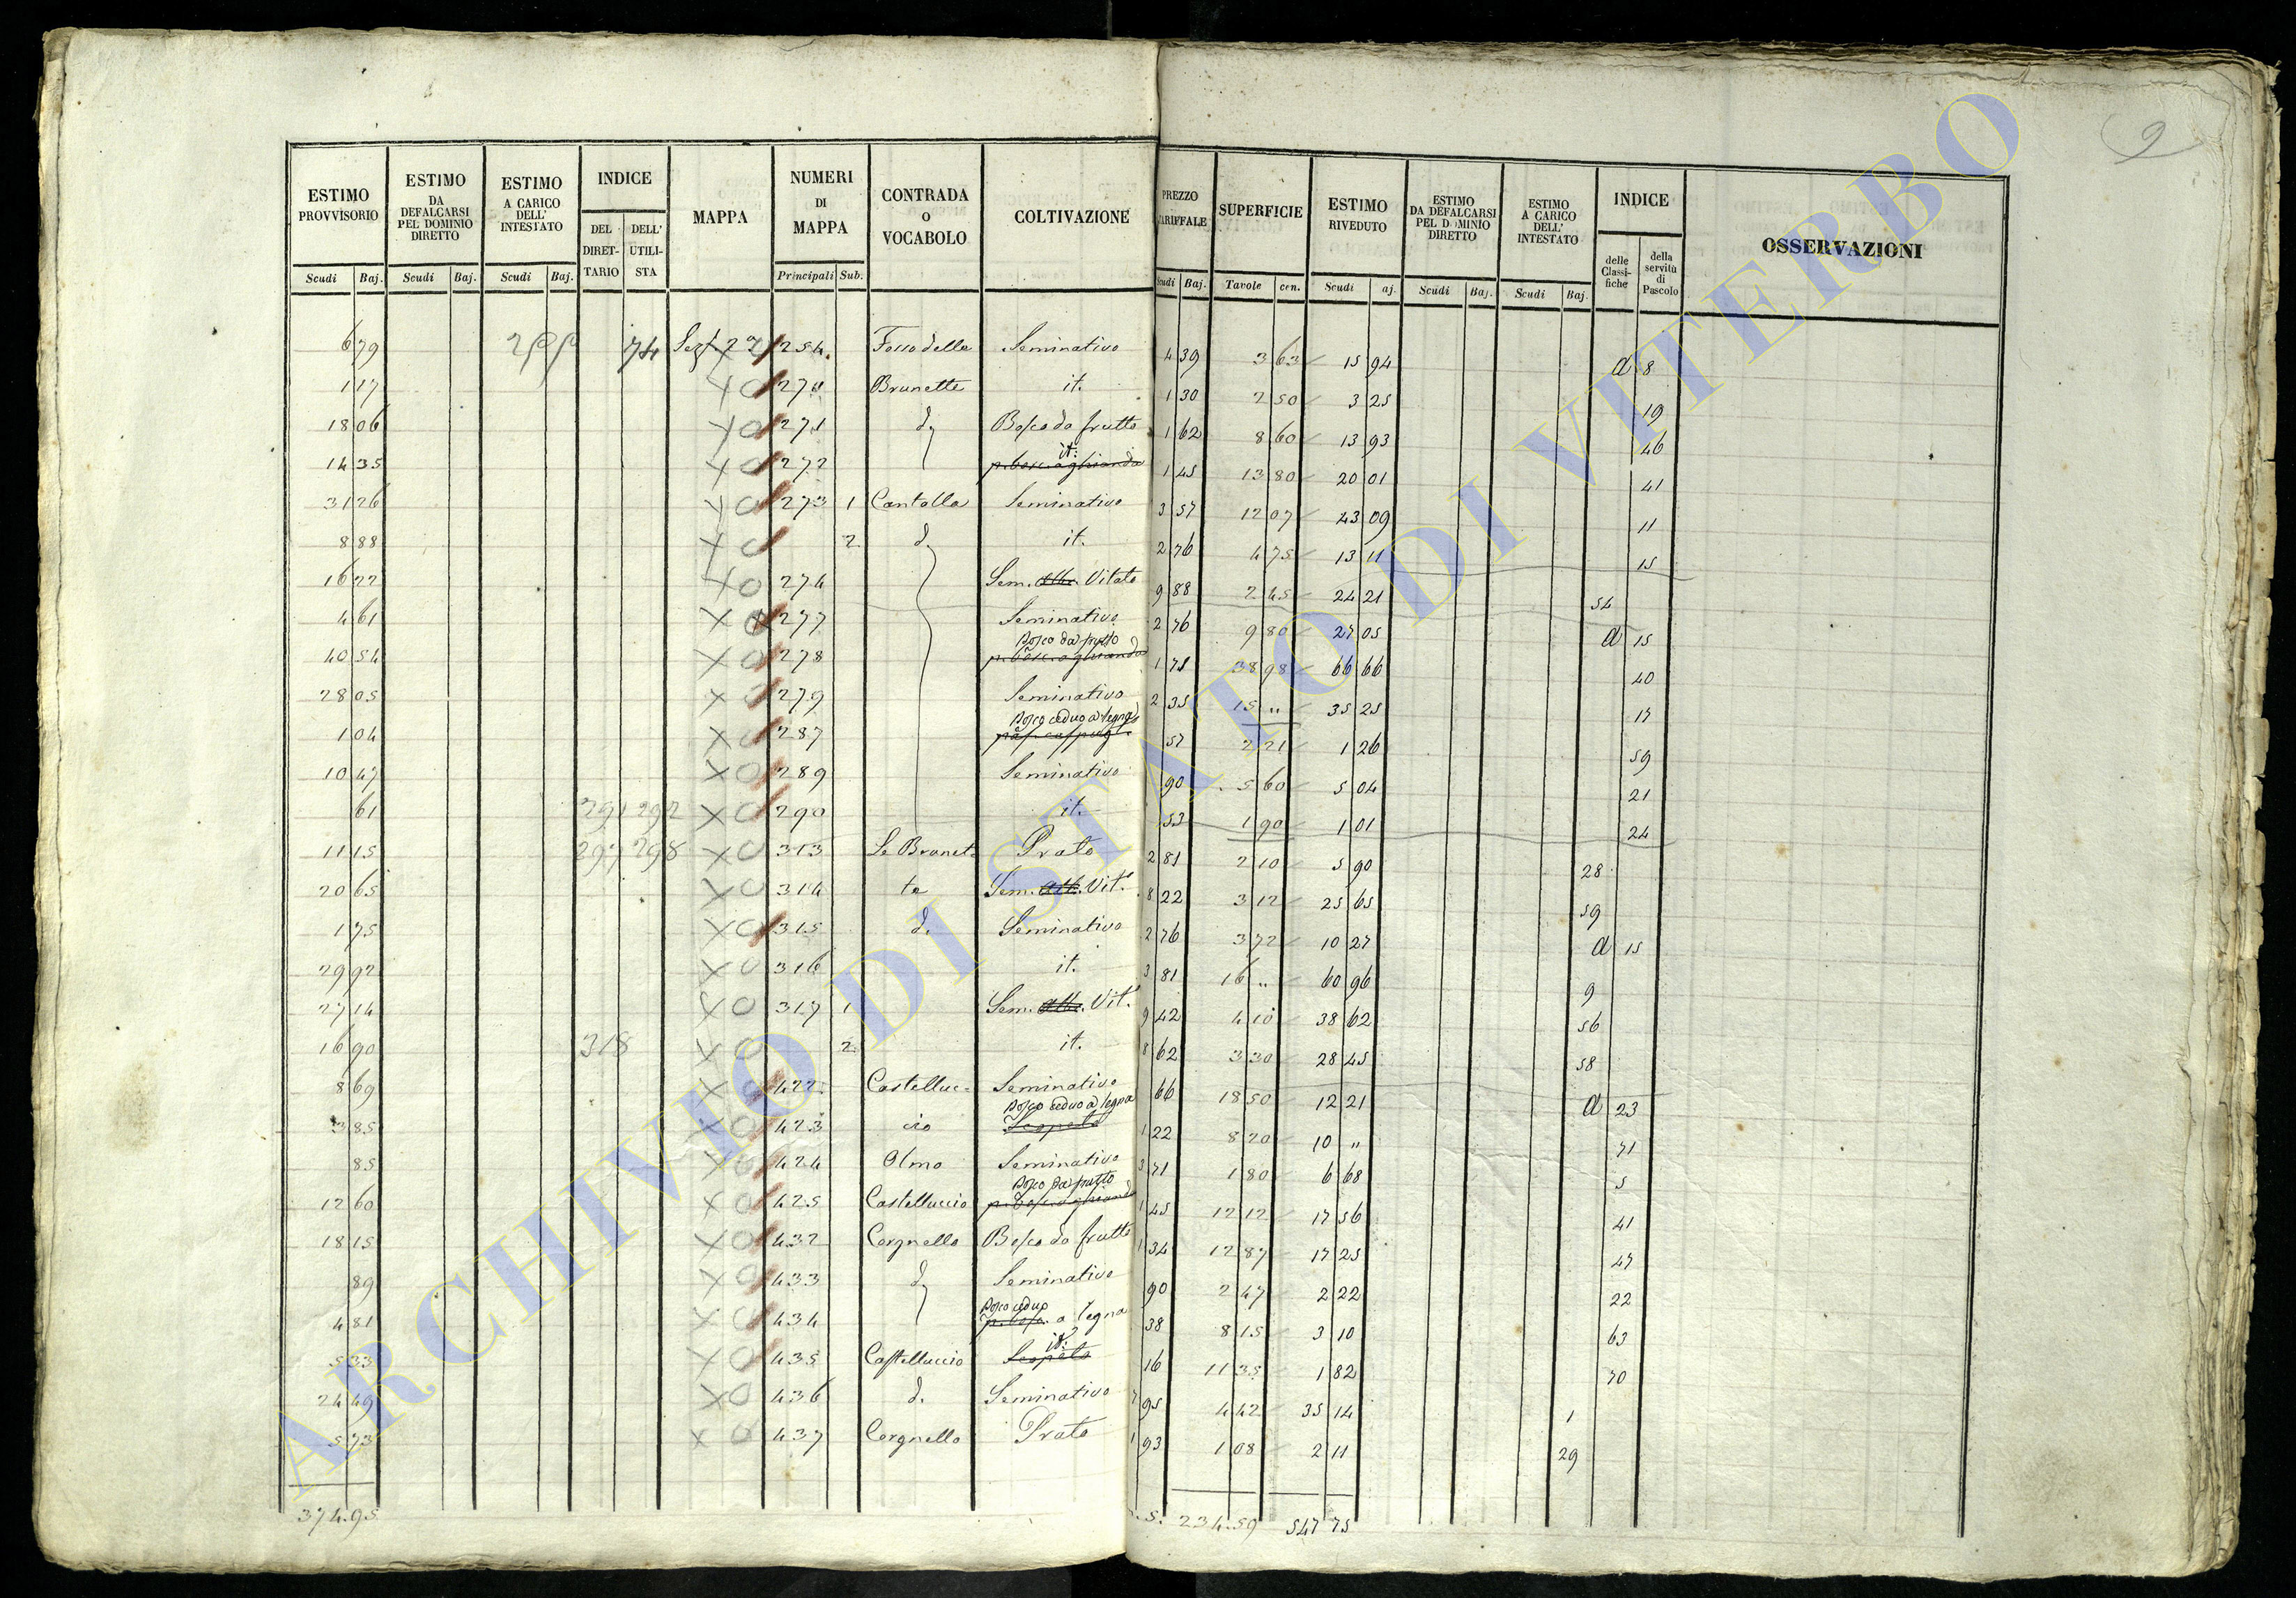 9
ESTIMO PROVVISORIO Scudi Baj.
ESTIMO DA DEFALCARSI PEL DOMINIO DIRETTO Scudi Baj.
ESTIMO A CARICO DELL' INTESTATO Scudi Baj.
INDICE DEL DIRET-TARIO DELL' UTILI-STA
MAPPA
NUMERI DI MAPPA Principali Sub.
CONTRADA O VOCABOLO
COLTIVAZIONE
PREZZO TARIFFALE Scudi Baj.
SUPERFICIE Tavole cen.
ESTIMO RIVEDUTO Scudi aj.
ESTIMO DA DEFALCARSI PEL DOMINIO DIRETTO Scudi Baj.
ESTIMO A CARICO DELL' INTESTATO Scudi Baj.
INDICE delle Classi-fiche della servitù di Pascolo
OSSERVAZIONI
6 79 74 254 Fosso delle Seminativo 4 39 3 63 15 94 a 8
1 17 270 Brunette it. 1 30 2 50 3 25 19
18 06 271 d. Bosco da frutto 1 62 8 60 13 93 46
14 35 272 it. p. bosc. a ghianda 1 45 13 80 20 01 41
31 26 273 1 Cantalla Seminativo 3 57 12 07 43 09 11
8 88 2 d. it. 2 76 4 75 13 11 15
16 22 274 Sem. Alb. Vitato 9 88 2 45 24 21 54
4 61 277 Seminativo 2 76 9 80 27 05 a 15
40 54 278 Bosco da frutto p. bosc. a ghianda 1 71 38 98 66 66 40
28 05 279 Seminativo 2 35 15 " 35 25 17
1 04 287 Bosco ceduo a legna 57 2 21 1 26 59
10 47 289 Seminativo 90 5 60 5 04 21
61 291 292 290 it. 53 1 90 1 01 24
11 15 297 298 313 Le Brunet= Prato 2 81 2 10 5 90 28
20 65 314 te Sem. Alb. Vit. 8 22 3 12 25 65 59
1 75 315 d. Seminativo 2 76 3 72 10 27 a 15
29 92 316 it. 3 81 16 " 60 96 9
27 14 317 1 Sem. Alb. Vit. 9 42 4 10 38 62 56
16 90 318 2 it. 8 62 3 30 28 45 58
8 69 422 Castelluc= Seminativo 66 18 50 12 21 a 23
3 85 423 cio Bosco ceduo a legna Scopeto 1 22 8 20 10 " 71
85 424 Olmo Seminativo 3 71 1 80 6 68 5
12 60 425 Castelluccio Bosco da frutto p. bosc. a ghianda 1 45 12 12 17 56 41
18 15 432 Corgnello Bosco da frutto 1 34 12 87 17 25 47
89 433 d. Seminativo 90 2 47 2 22 22
4 81 434 Bosco ceduo p. bosc. a legna 38 8 15 3 10 63
5 33 435 Castelluccio it. Scopeto 16 11 35 1 82 70
24 49 436 d. Seminativo 7 95 4 42 35 14 1
5 73 437 Corgnello Prato 1 93 1 08 2 11 29
374.95 234.59 547 75
ARCHIVIO DI STATO DI VITERBO